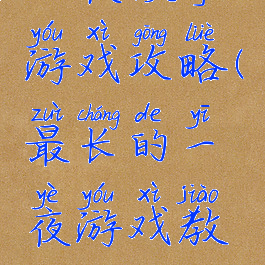 yóu xì gōng lüè
游戏攻略(
zuì cháng de yī
最长的一
yè yóu xì jiào
夜游戏教